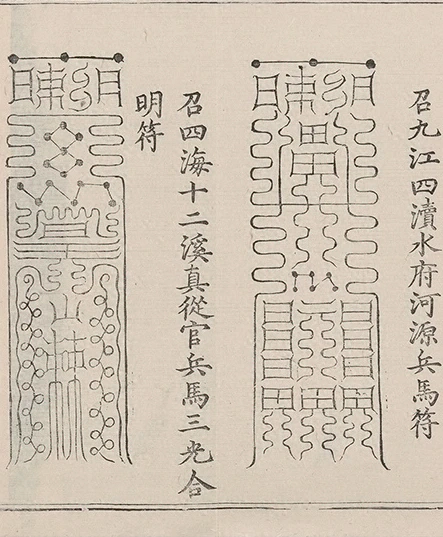 召九江四瀆水府河源兵馬符
召四海十二溪真從官兵馬三光合
明符